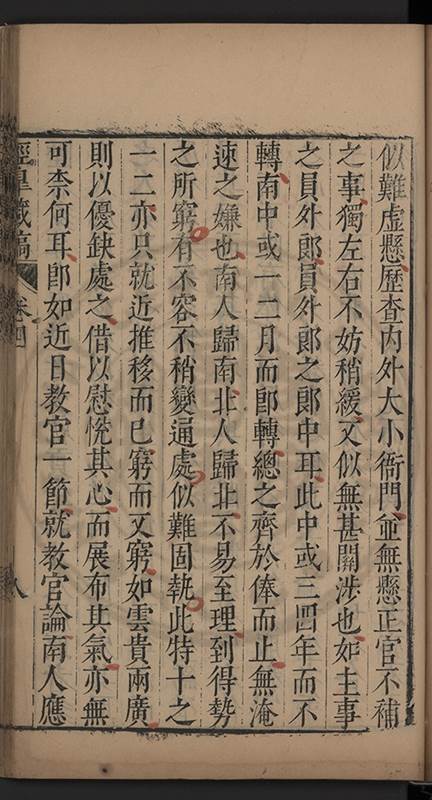 似難虛懸歷查內外大小衙門並無懸正官不補
之事獨左右不妨稍緩又似無甚關涉也如主事
之員外郎員外郎之郎中耳此中或三四年而不
轉南中或一二月而卽轉總之齊於俸而止無淹
速之嫌也南人歸南北人歸北不易至理到得勢
之所窮有不容不稍變通處似難固執此特十之
一二亦只就近推移而已窮而又窮如雲貴兩廣
則以優缺處之借以慰恱其心而展布其氣亦無
可柰何耳卽如近日教官一節就教官論南人應
卷四
八